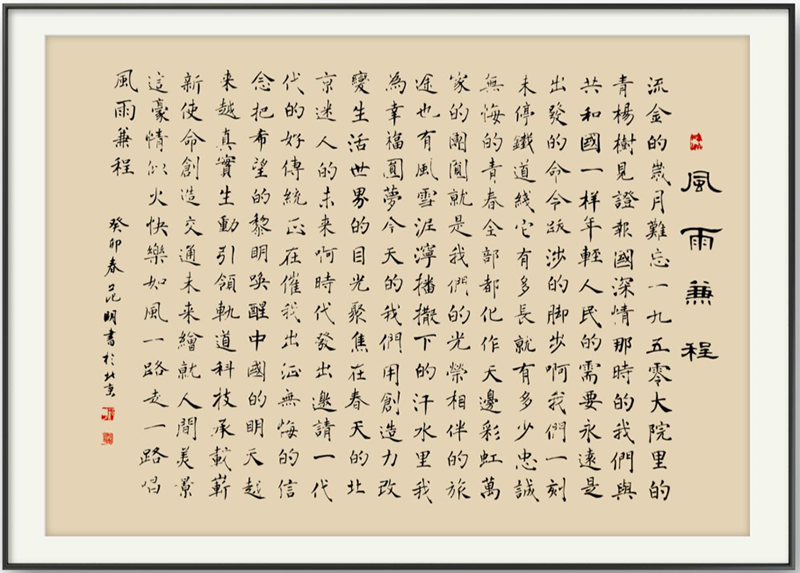 風雨兼程
流金的歲月難忘一九五零大院里的
青楊樹見證報國深情那時的我們與
共和國一樣年輕人民的需要永遠是
出發的命令跋涉的脚步啊我們一刻
未停鐵道綫它有多長就有多少忠誠
無悔的青春全部都化作天邊彩虹萬
家的團圓就是我們的光榮相伴的旅
途也有風雪泥濘播撒下的汗水里我
為幸福圓夢今天的我們用創造力改
變生活世界的目光聚焦在春天的北
京迷人的未來啊時代發出邀請一代
代的好傳統正在催我出征無悔的信
念把希望的黎明喚醒中國的明天越
來越真實生動引領軌道科技承載嶄
新使命創造交通未來繪就人間美景
這豪情似火快樂如風一路走一路唱
風雨兼程
癸卯春昆明書於北京